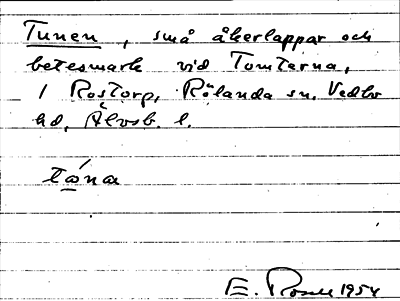 Tunen, små åkerlappar och
betesmark vid Tomterna,
1 Rostorp, Rölanda sn, Vedbo
hd, Älvsb. l.
tána
E. 1954